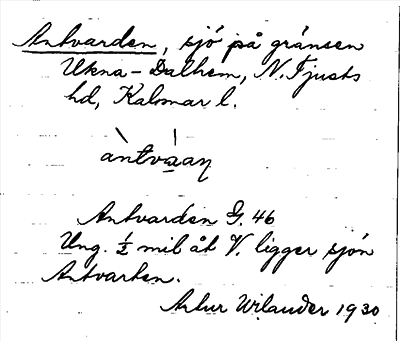 Antvarden, sjö på gränsen
Ukna-Dalhem, N. Tjusts
hd, Kalmar l.
àntvàaŋ
Antvarden G. 46
Ung. ½ mil åt V. ligger sjön
Antvarken.
Artur Wilander 1930